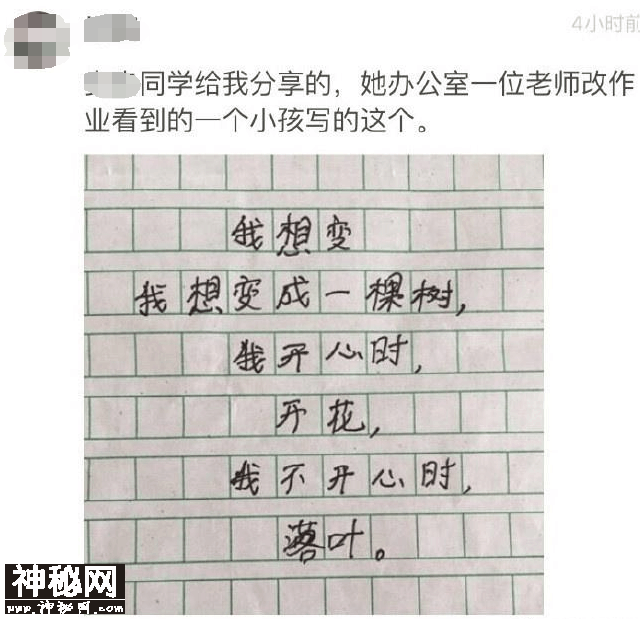 4小时前
同学给我分享的，她办公室一位老师改作
业看到的一个小孩写的这个。
我想变
我想变成一棵树，
我开心时，
开花，
我不开心时，
落叶。
神秘网
www.神秘网.com